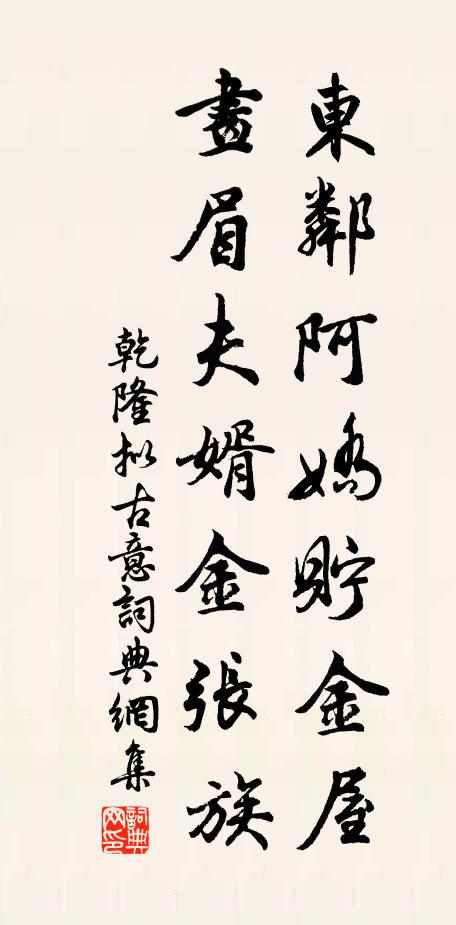 東鄰阿嬌貯金屋
畫眉夫婿金張族
乾隆擬古意詞典網集
詞典網印